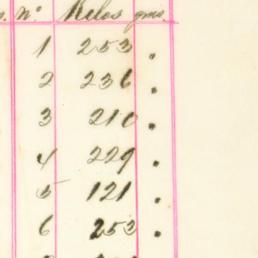 Nº Kilos gms.
1 253 .
2 236 .
3 210 .
4 229 .
5 121 .
6 253 .